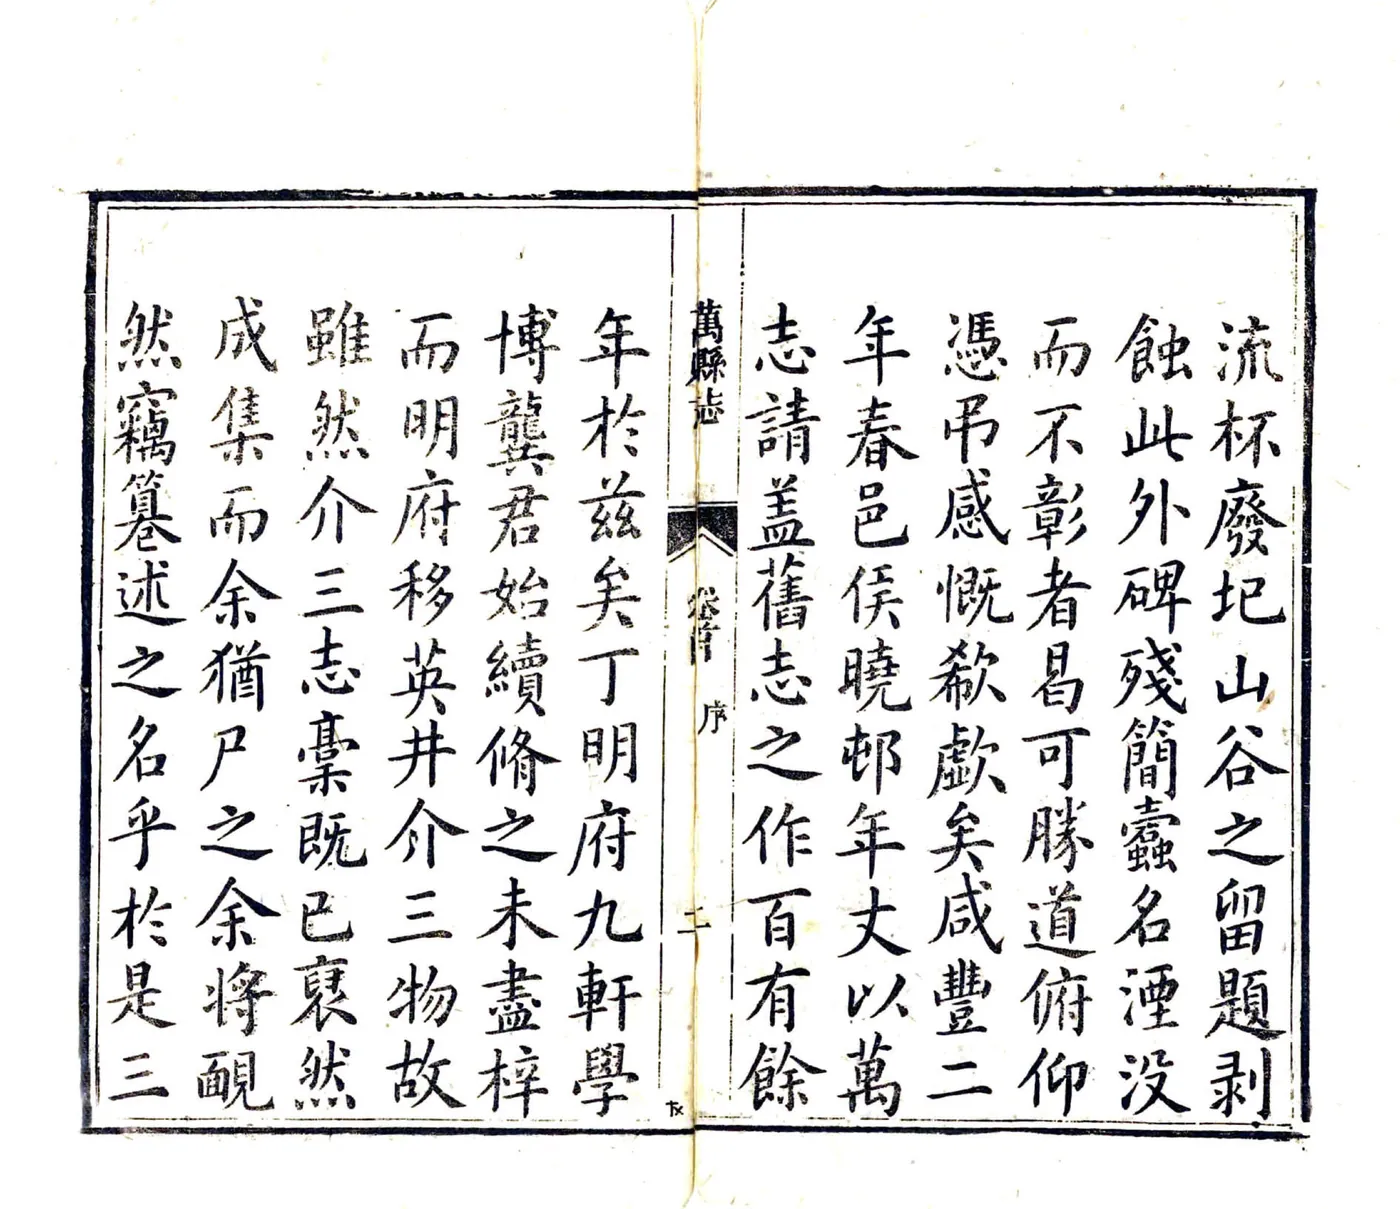 流杯廢圯山谷之留題剥
蝕此外碑殘簡蠹名湮没
而不彰者曷可勝道俯仰
憑弔感慨欷歔矣咸豐二
年春邑侯曉邨年丈以萬
志請盖舊志之作百有餘
萬縣志
卷首
序
二
年於兹矣丁明府九軒學
博龔君始續脩之未盡梓
而明府移英井介三物故
雖然介三志稾既已裒然
成集而余猶尸之余將靦
然竊簒述之名乎於是三